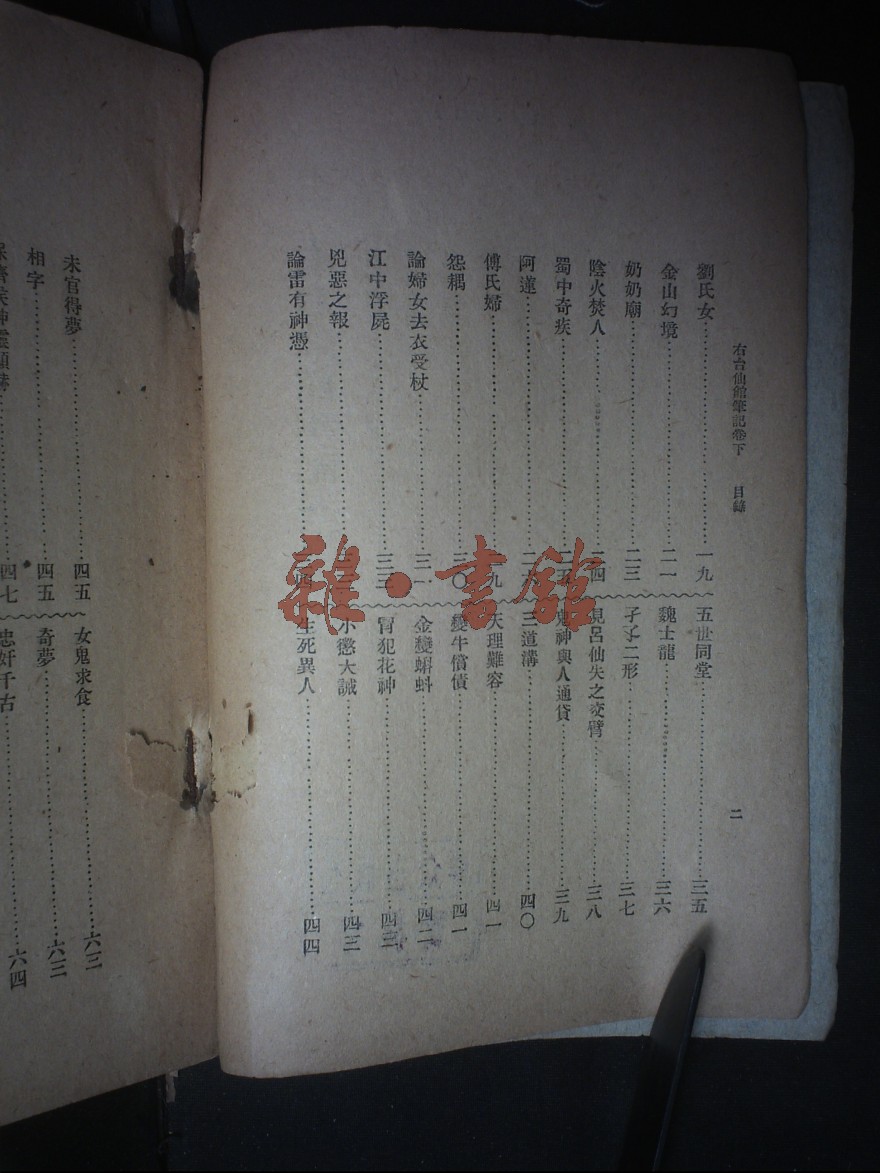 右台仙館筆記卷下 目錄
二
劉氏女 一九
金山幻境 二一
奶奶廟 二三
陰火焚人 二四
蜀中奇疾 二五
阿達
傅氏婦
怨耦 三〇
論婦女去衣受杖 三一
江中浮屍 三三
兇惡之報
論雷有神憑
五世同堂 三五
魏士龍 三六
孑孓二形 三七
見呂仙失之交臂 三八
鬼神與人通貸 三九
三道溝 四〇
天理難容 四一
變牛償債 四一
金變蝌蚪 四二
冒犯花神 四三
小懲大誡 四三
生死異人 四四
未官得夢 四五
相字 四五
四七
女鬼求食 六三
奇夢 六三
忠奸千古 六四
雜·書館